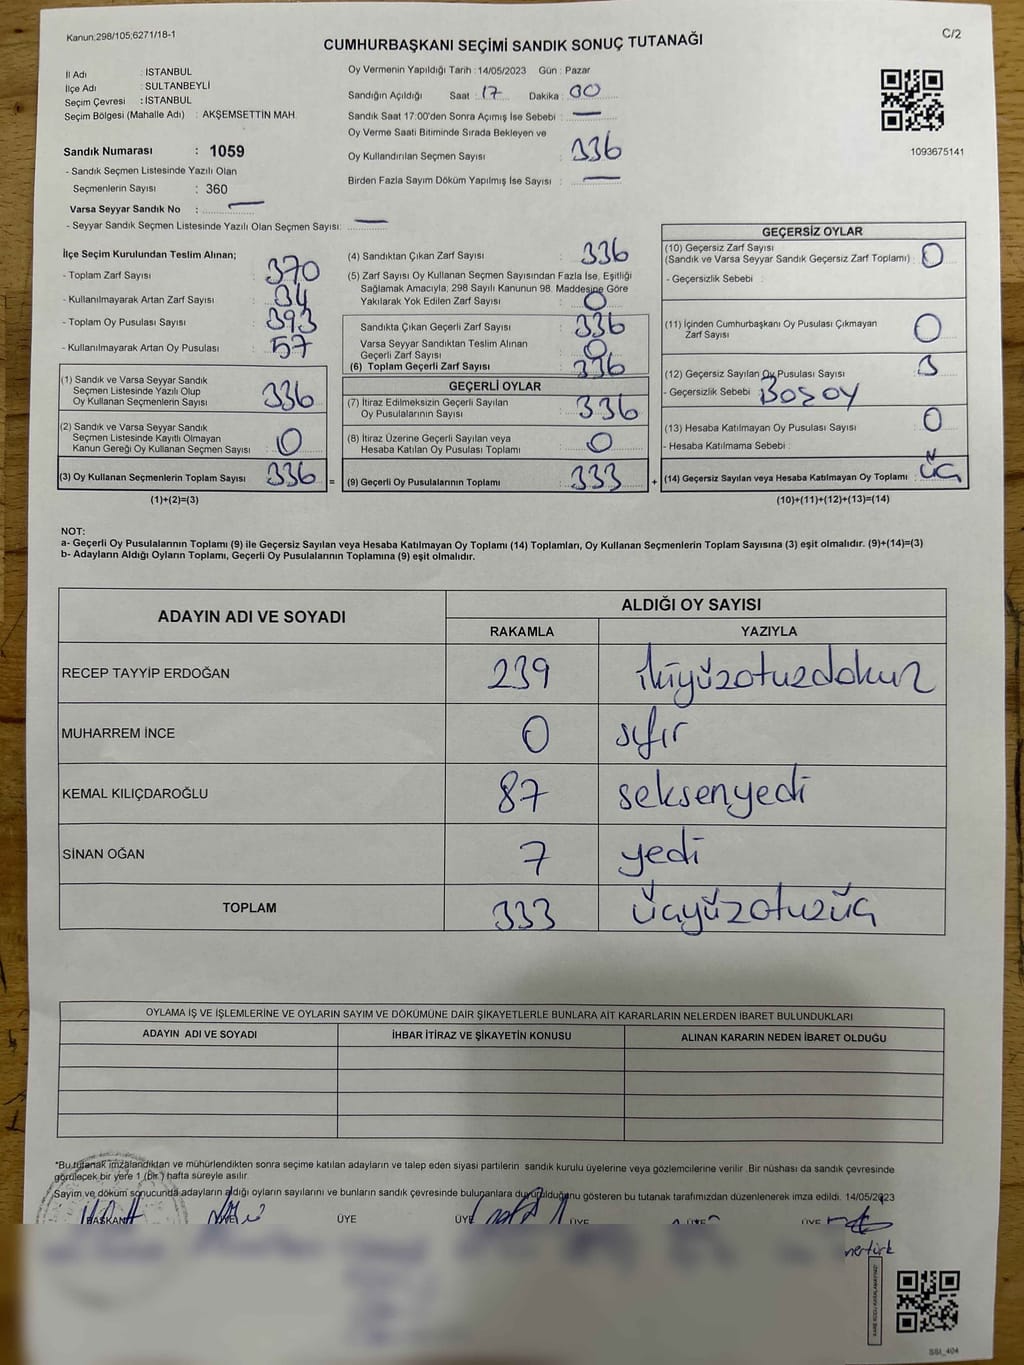 Kanun;298/105;6271/18-1
C/2
CUMHURBAŞKANI SEÇİMİ SANDIK SONUÇ TUTANAĞI
İl Adı : İSTANBUL
İlçe Adı : SULTANBEYLİ
Seçim Çevresi : İSTANBUL
Seçim Bölgesi (Mahalle Adı) : AKŞEMSETTİN MAH.
Sandık Numarası : 1059
- Sandık Seçmen Listesinde Yazılı Olan
Seçmenlerin Sayısı : 360
Varsa Seyyar Sandık No :
- Seyyar Sandık Seçmen Listesinde Yazılı Olan Seçmen Sayısı:
Oy Vermenin Yapıldığı Tarih : 14/05/2023 Gün : Pazar
Sandığın Açıldığı Saat : 17 Dakika : 00
Sandık Saat 17:00'den Sonra Açımış İse Sebebi :
Oy Verme Saati Bitiminde Sırada Bekleyen ve
Oy Kullandırılan Seçmen Sayısı : 336
Birden Fazla Sayım Döküm Yapılmış İse Sayısı :
1093675141
İlçe Seçim Kurulundan Teslim Alınan;
- Toplam Zarf Sayısı : 370
- Kullanılmayarak Artan Zarf Sayısı : 34
- Toplam Oy Pusulası Sayısı : 393
- Kullanılmayarak Artan Oy Pusulası : 57
(1) Sandık ve Varsa Seyyar Sandık
Seçmen Listesinde Yazılı Olup
Oy Kullanan Seçmenlerin Sayısı : 336
(2) Sandık ve Varsa Seyyar Sandık
Seçmen Listesinde Kayıtlı Olmayan
Kanun Gereği Oy Kullanan Seçmen Sayısı : 0
(3) Oy Kullanan Seçmenlerin Toplam Sayısı : 336
=
(1)+(2)=(3)
(4) Sandıktan Çıkan Zarf Sayısı : 336
(5) Zarf Sayısı Oy Kullanan Seçmen Sayısından Fazla İse, Eşitliği
Sağlamak Amacıyla, 298 Sayılı Kanunun 98. Maddesine Göre
Yakılarak Yok Edilen Zarf Sayısı : 0
Sandıkta Çıkan Geçerli Zarf Sayısı : 336
Varsa Seyyar Sandıktan Teslim Alınan
Geçerli Zarf Sayısı : 0
(6) Toplam Geçerli Zarf Sayısı : 336
GEÇERLİ OYLAR
(7) İtiraz Edilmeksizin Geçerli Sayılan
Oy Pusulalarının Sayısı : 336
(8) İtiraz Üzerine Geçerli Sayılan veya
Hesaba Katılan Oy Pusulası Toplamı : 0
(9) Geçerli Oy Pusulalarının Toplamı : 333
+
GEÇERSİZ OYLAR
(10) Geçersiz Zarf Sayısı
(Sandık ve Varsa Seyyar Sandık Geçersiz Zarf Toplamı) : 0
- Geçersizlik Sebebi :
(11) İçinden Cumhurbaşkanı Oy Pusulası Çıkmayan
Zarf Sayısı : 0
(12) Geçersiz Sayılan Oy Pusulası Sayısı : 3
- Geçersizlik Sebebi : Boş oy
(13) Hesaba Katılmayan Oy Pusulası Sayısı : 0
- Hesaba Katılmama Sebebi :
(14) Geçersiz Sayılan veya Hesaba Katılmayan Oy Toplamı : üç
(10)+(11)+(12)+(13)=(14)
NOT:
a- Geçerli Oy Pusulalarının Toplamı (9) ile Geçersiz Sayılan veya Hesaba Katılmayan Oy Toplamı (14) Toplamları, Oy Kullanan Seçmenlerin Toplam Sayısına (3) eşit olmalıdır. (9)+(14)=(3)
b- Adayların Aldığı Oyların Toplamı, Geçerli Oy Pusulalarının Toplamına (9) eşit olmalıdır.
ADAYIN ADI VE SOYADI
ALDIĞI OY SAYISI
RAKAMLA YAZIYLA
RECEP TAYYİP ERDOĞAN 239 ikiyüzotuzdokuz
MUHARREM İNCE 0 sıfır
KEMAL KILIÇDAROĞLU 87 seksenyedi
SİNAN OĞAN 7 yedi
TOPLAM 333 üçyüzotuzüç
OYLAMA İŞ VE İŞLEMLERİNE VE OYLARIN SAYIM VE DÖKÜMÜNE DAİR ŞİKAYETLERLE BUNLARA AİT KARARLARIN NELERDEN İBARET BULUNDUKLARI
ADAYIN ADI VE SOYADI İHBAR İTİRAZ VE ŞİKAYETİN KONUSU ALINAN KARARIN NEDEN İBARET OLDUĞU
*Bu tutanak imzalandıktan ve mühürlendikten sonra seçime katılan adayların ve talep eden siyasi partilerin sandık kurulu üyelerine veya gözlemcilerine verilir .Bir nüshası da sandık çevresinde
görülecek bir yere 1 (bir ) hafta süreyle asılır.
Sayım ve döküm sonucunda adayların aldığı oyların sayılarını ve bunların sandık çevresinde bulunanlara duyurulduğunu gösteren bu tutanak tarafımızdan düzenlenerek imza edildi. 14/05/2023
BAŞKAN ÜYE ÜYE ÜYE ÜYE ÜYE ÜYE
SSI_404